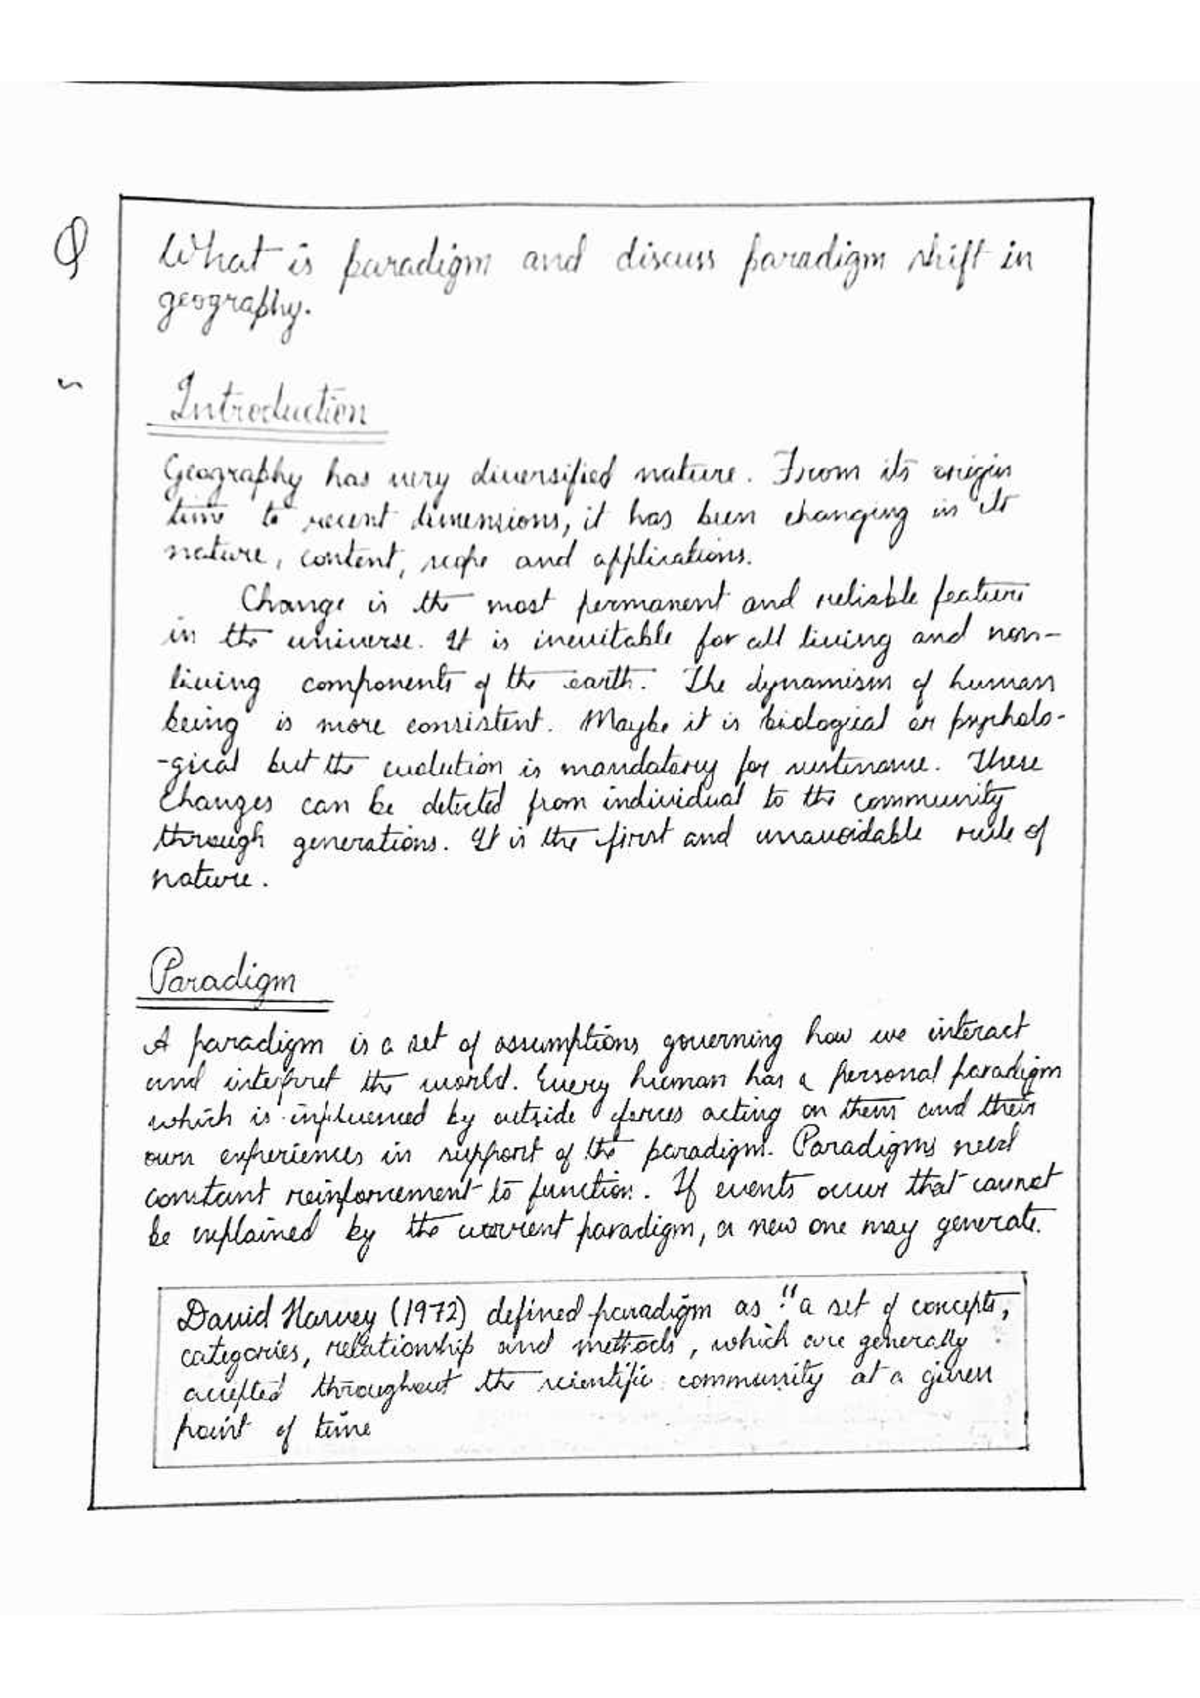 Q
What is paradigm and discuss paradigm shift in
geography.
Introduction
Geography has very diversified nature. From its origin
time to recent dimensions, it has been changing in its
nature, content, scope and applications.
Change is the most permanent and reliable feature
in the universe. It is inevitable for all living and non-
living components of the earth. The dynamism of human
being is more consistent. Maybe it is biological or psycholo-
-gical but the evolution is mandatory for sustenance. These
changes can be detected from individual to the community
through generations. It is the first and unavoidable rule of
nature.
Paradigm
A paradigm is a set of assumptions governing how we interact
and interpret the world. Every human has a personal paradigm
which is influenced by outside forces acting on them and their
own experiences in support of the paradigm. Paradigms need
constant reinforcement to function. If events occur that cannot
be explained by the current paradigm, a new one may generate.
David Harvey (1972) defined paradigm as "a set of concepts,
categories, relationship and methods, which are generally
accepted throughout the scientific community at a given
point of time